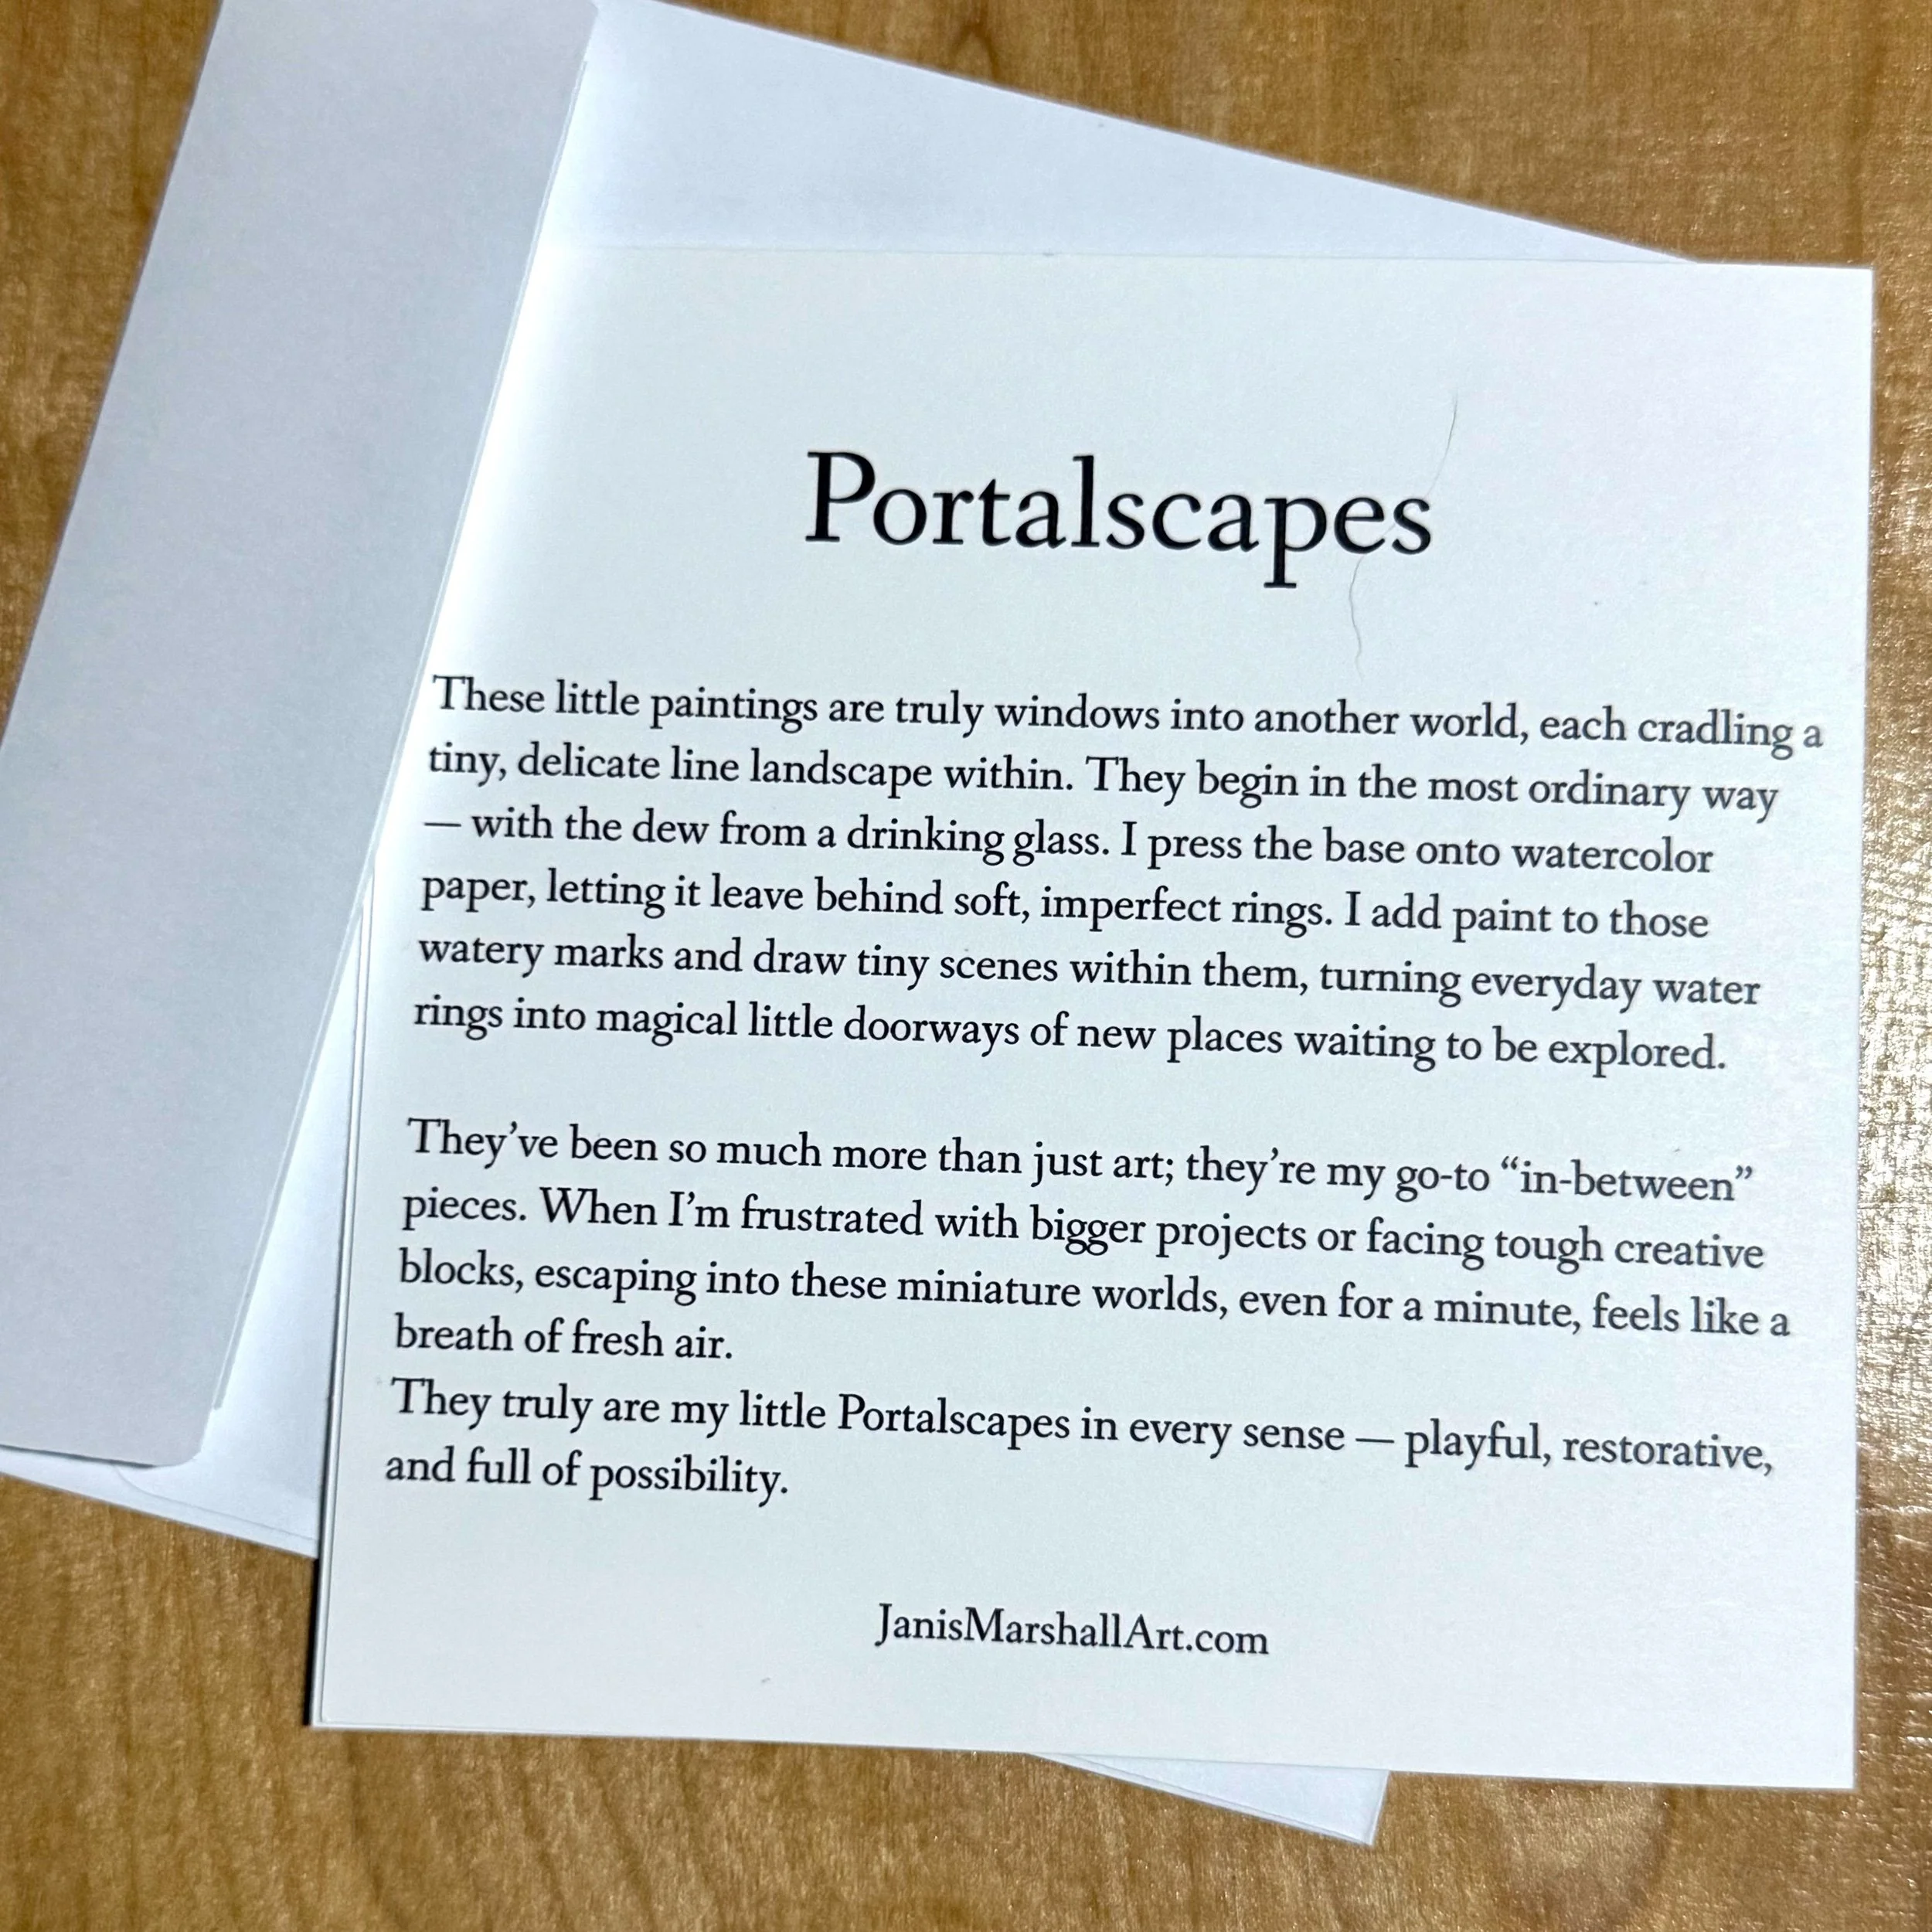 Portalscapes
These little paintings are truly windows into another world, each cradling a
tiny, delicate line landscape within. They begin in the most ordinary way
— with the dew from a drinking glass. I press the base onto watercolor
paper, letting it leave behind soft, imperfect rings. I add paint to those
watery marks and draw tiny scenes within them, turning everyday water
rings into magical little doorways of new places waiting to be explored.
They’ve been so much more than just art; they’re my go-to “in-between”
pieces. When I’m frustrated with bigger projects or facing tough creative
blocks, escaping into these miniature worlds, even for a minute, feels like a
breath of fresh air.
They truly are my little Portalscapes in every sense — playful, restorative,
and full of possibility.
JanisMarshallArt.com